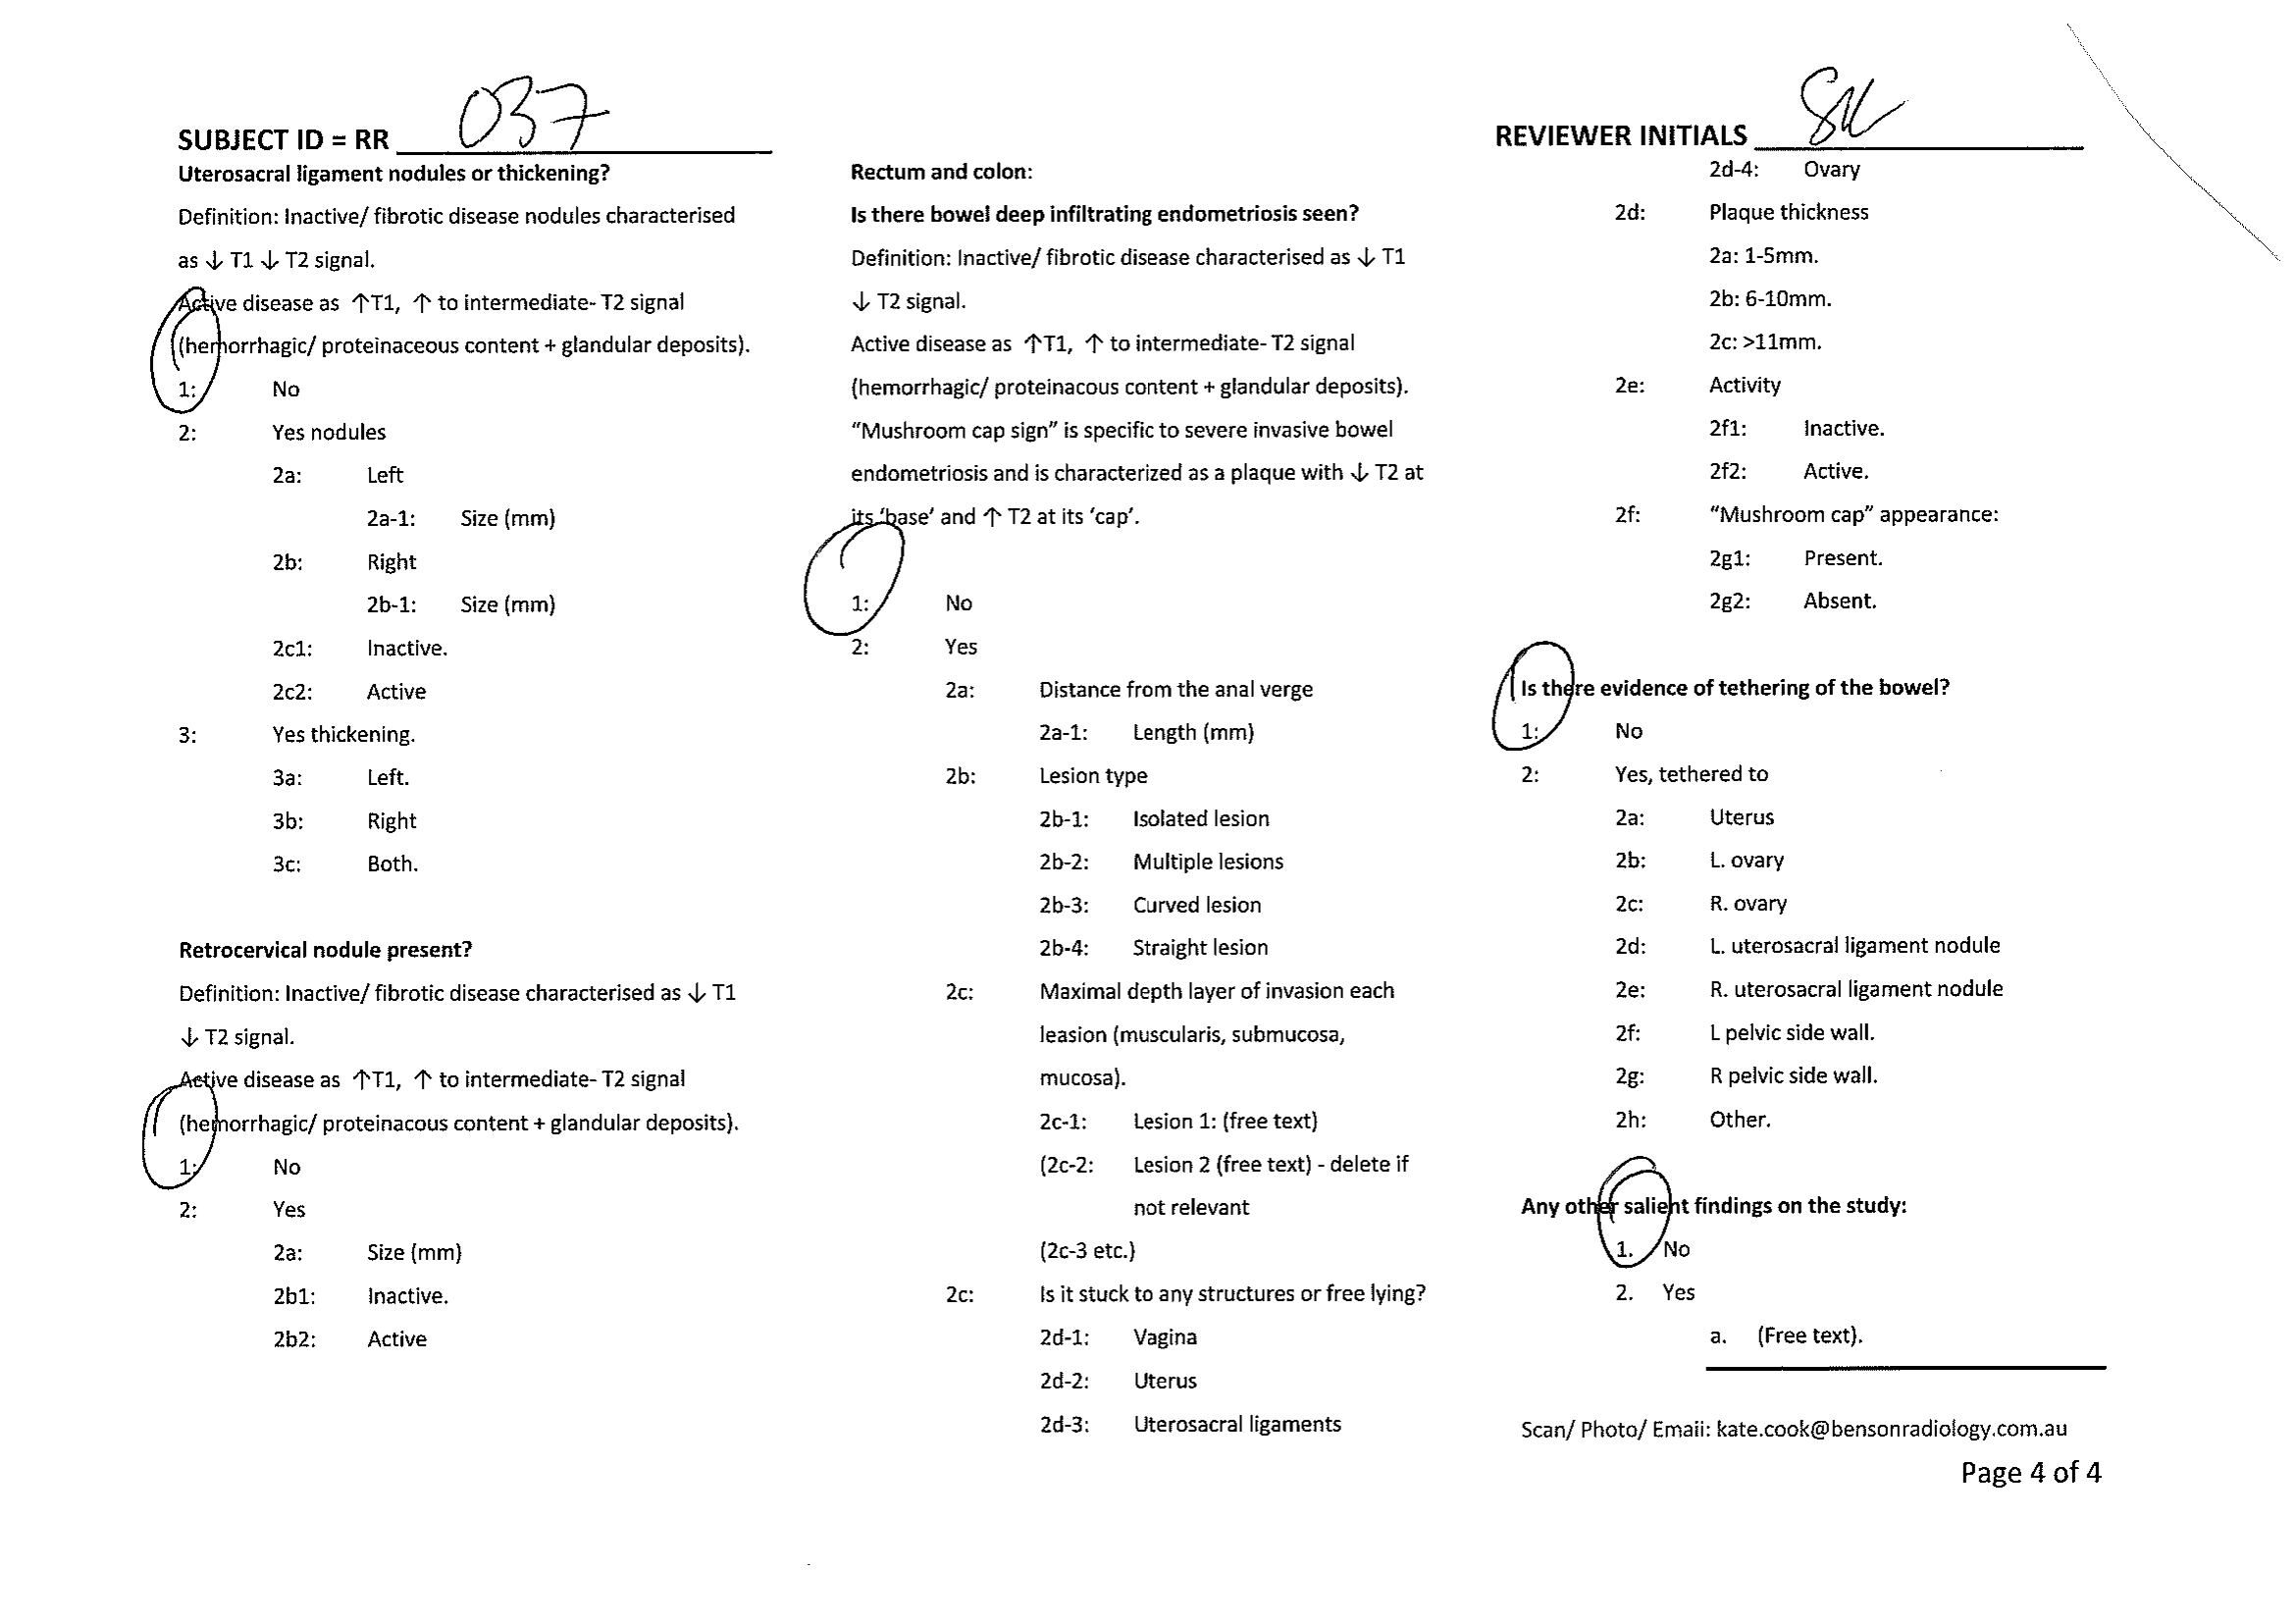 SUBJECT ID = RR 037
Uterosacral ligament nodules or thickening?
Definition: Inactive/ fibrotic disease nodules characterised
as ↓ T1 ↓ T2 signal.
Active disease as ↑T1, ↑ to intermediate- T2 signal
(hemorrhagic/ proteinaceous content + glandular deposits).
1: No
2: Yes nodules
2a: Left
2a-1: Size (mm)
2b: Right
2b-1: Size (mm)
2c1: Inactive.
2c2: Active
3: Yes thickening.
3a: Left.
3b: Right
3c: Both.
Retrocervical nodule present?
Definition: Inactive/ fibrotic disease characterised as ↓ T1
↓ T2 signal.
Active disease as ↑T1, ↑ to intermediate- T2 signal
(hemorrhagic/ proteinacous content + glandular deposits).
1: No
2: Yes
2a: Size (mm)
2b1: Inactive.
2b2: Active
Rectum and colon:
Is there bowel deep infiltrating endometriosis seen?
Definition: Inactive/ fibrotic disease characterised as ↓ T1
↓ T2 signal.
Active disease as ↑T1, ↑ to intermediate- T2 signal
(hemorrhagic/ proteinacous content + glandular deposits).
“Mushroom cap sign” is specific to severe invasive bowel
endometriosis and is characterized as a plaque with ↓ T2 at
its ‘base’ and ↑ T2 at its ‘cap’.
1: No
2: Yes
2a: Distance from the anal verge
2a-1: Length (mm)
2b: Lesion type
2b-1: Isolated lesion
2b-2: Multiple lesions
2b-3: Curved lesion
2b-4: Straight lesion
2c: Maximal depth layer of invasion each
leasion (muscularis, submucosa,
mucosa).
2c-1: Lesion 1: (free text)
(2c-2: Lesion 2 (free text) - delete if
not relevant
(2c-3 etc.)
2c: Is it stuck to any structures or free lying?
2d-1: Vagina
2d-2: Uterus
2d-3: Uterosacral ligaments
REVIEWER INITIALS
2d-4: Ovary
2d: Plaque thickness
2a: 1-5mm.
2b: 6-10mm.
2c: >11mm.
2e: Activity
2f1: Inactive.
2f2: Active.
2f: “Mushroom cap” appearance:
2g1: Present.
2g2: Absent.
Is there evidence of tethering of the bowel?
1: No
2: Yes, tethered to
2a: Uterus
2b: L. ovary
2c: R. ovary
2d: L. uterosacral ligament nodule
2e: R. uterosacral ligament nodule
2f: L pelvic side wall.
2g: R pelvic side wall.
2h: Other.
Any other salient findings on the study:
1. No
2. Yes
a. (Free text).
Scan/ Photo/ Email: kate.cook@bensonradiology.com.au
Page 4 of 4